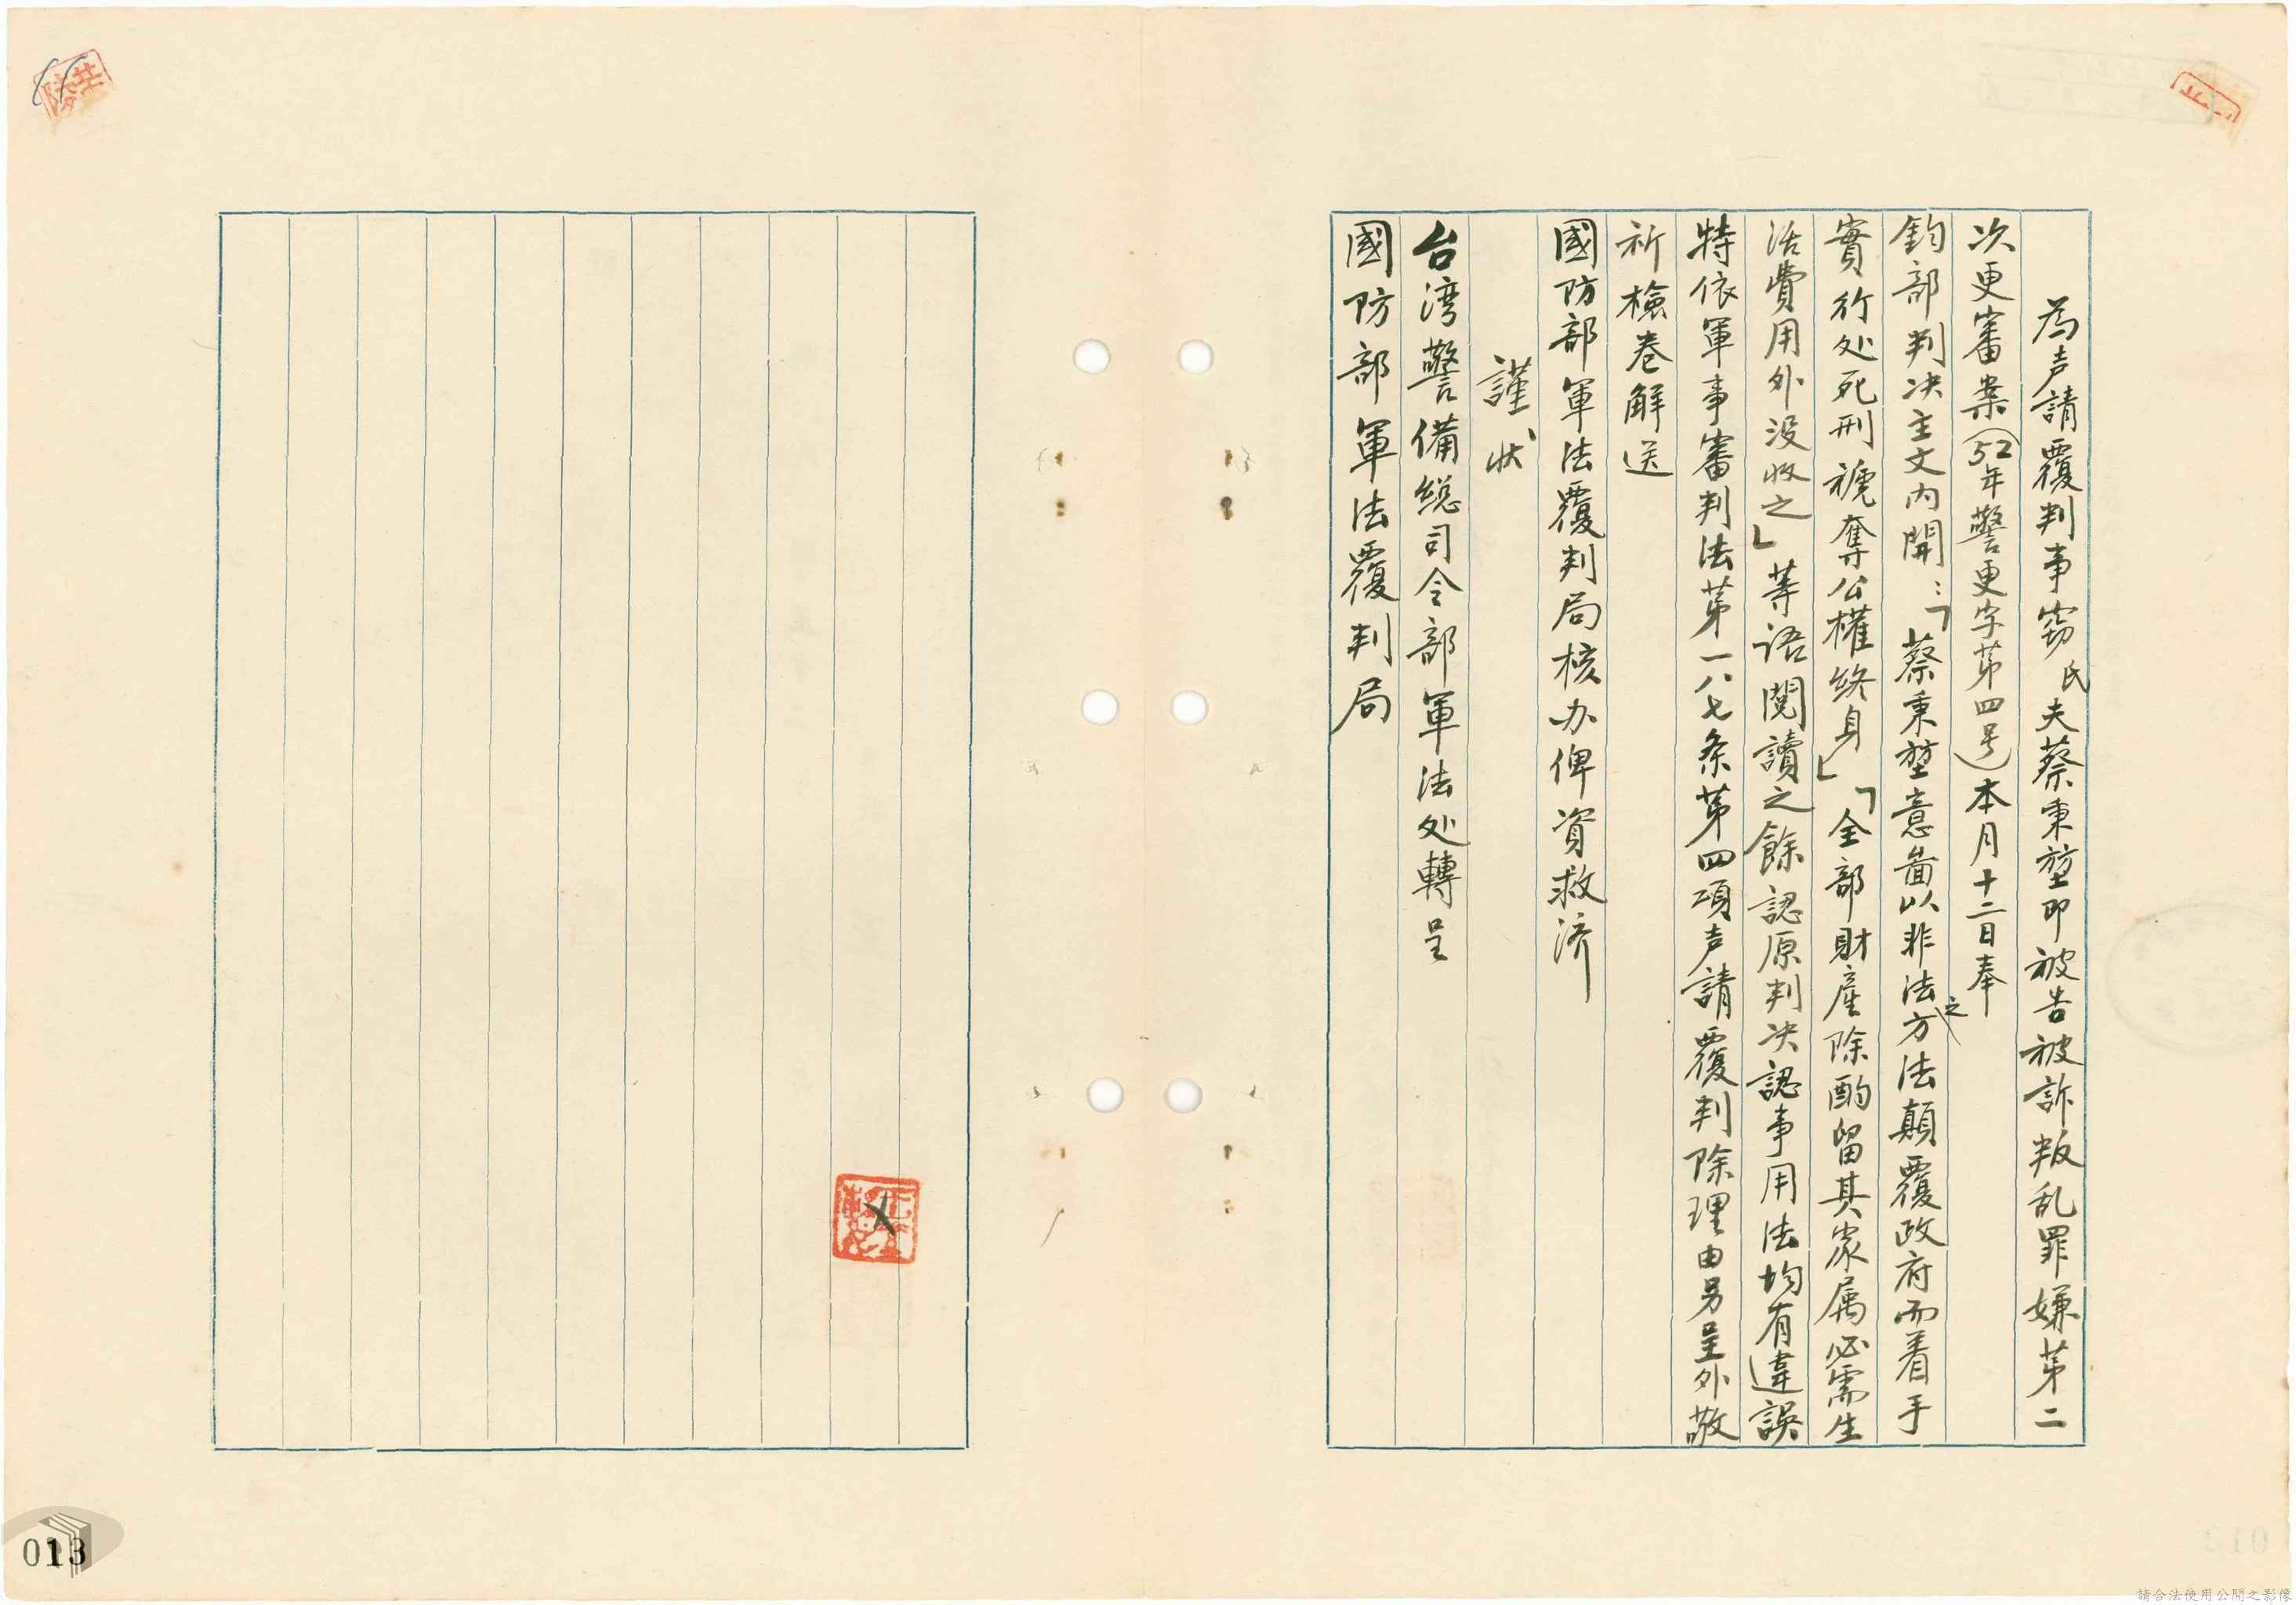 為声請覆判事窃氏夫蔡秉堃即被告被訴叛乱罪嫌第二
次更審案(52年警更字第四号)本月十二日奉
鈞部判决主文内開:「蔡秉堃意啚以非法之方法顛覆政府而着手
實行处死刑褫奪公權終身」「全部財產除酌留其家属必需生
活費用外没收之」等语閱讀之餘認原判决認事用法均有違誤
特依軍事審判法第一八七条第四項声請覆判除理由另呈外敬
祈檢卷解送
國防部軍法覆判局核办俾資救济
謹狀
台湾警備総司令部軍法处轉呈
國防部軍法覆判局
013
請合法使用公開之影像